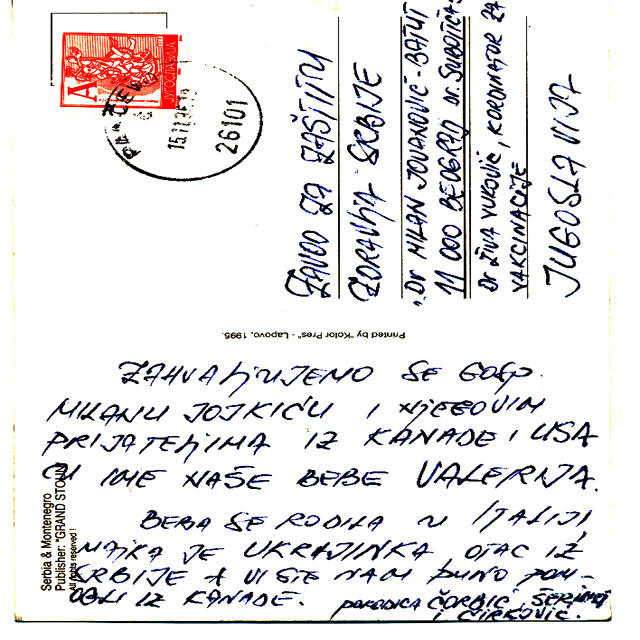 A
26101
ZAVOD ZA ZAŠTITU
ZDRAVLJA SRBIJE
„Dr MILAN JOVANOVIĆ - BATUT
11 000 BEOGRAD Dr. SUBOTIĆA
Dr ŽIVA VUKOVIĆ, KORDINATOR ZA
VAKCINACIJE
JUGOSLAVIJA
Printed by "Kolor Pres" - Lapovo, 1995.
ZAHVALJUJEMO SE GOSP.
MILANU JOJKIĆU I NJEGOVIM
PRIJATELJIMA IZ KANADE I USA
U IME NAŠE BEBE VALERIJA.
BEBA SE RODILA U ITALIJI
MAJKA JE UKRAJINKA OTAC IZ
SRBIJE A VI STE NAM PUNO POM-
OGLI IZ KANADE. PORODICA ČORBIĆ,
I ĆIRKOVIĆ.
Serbia & Montenegro
Publisher: "GRAND STOJ
All rights reserved !